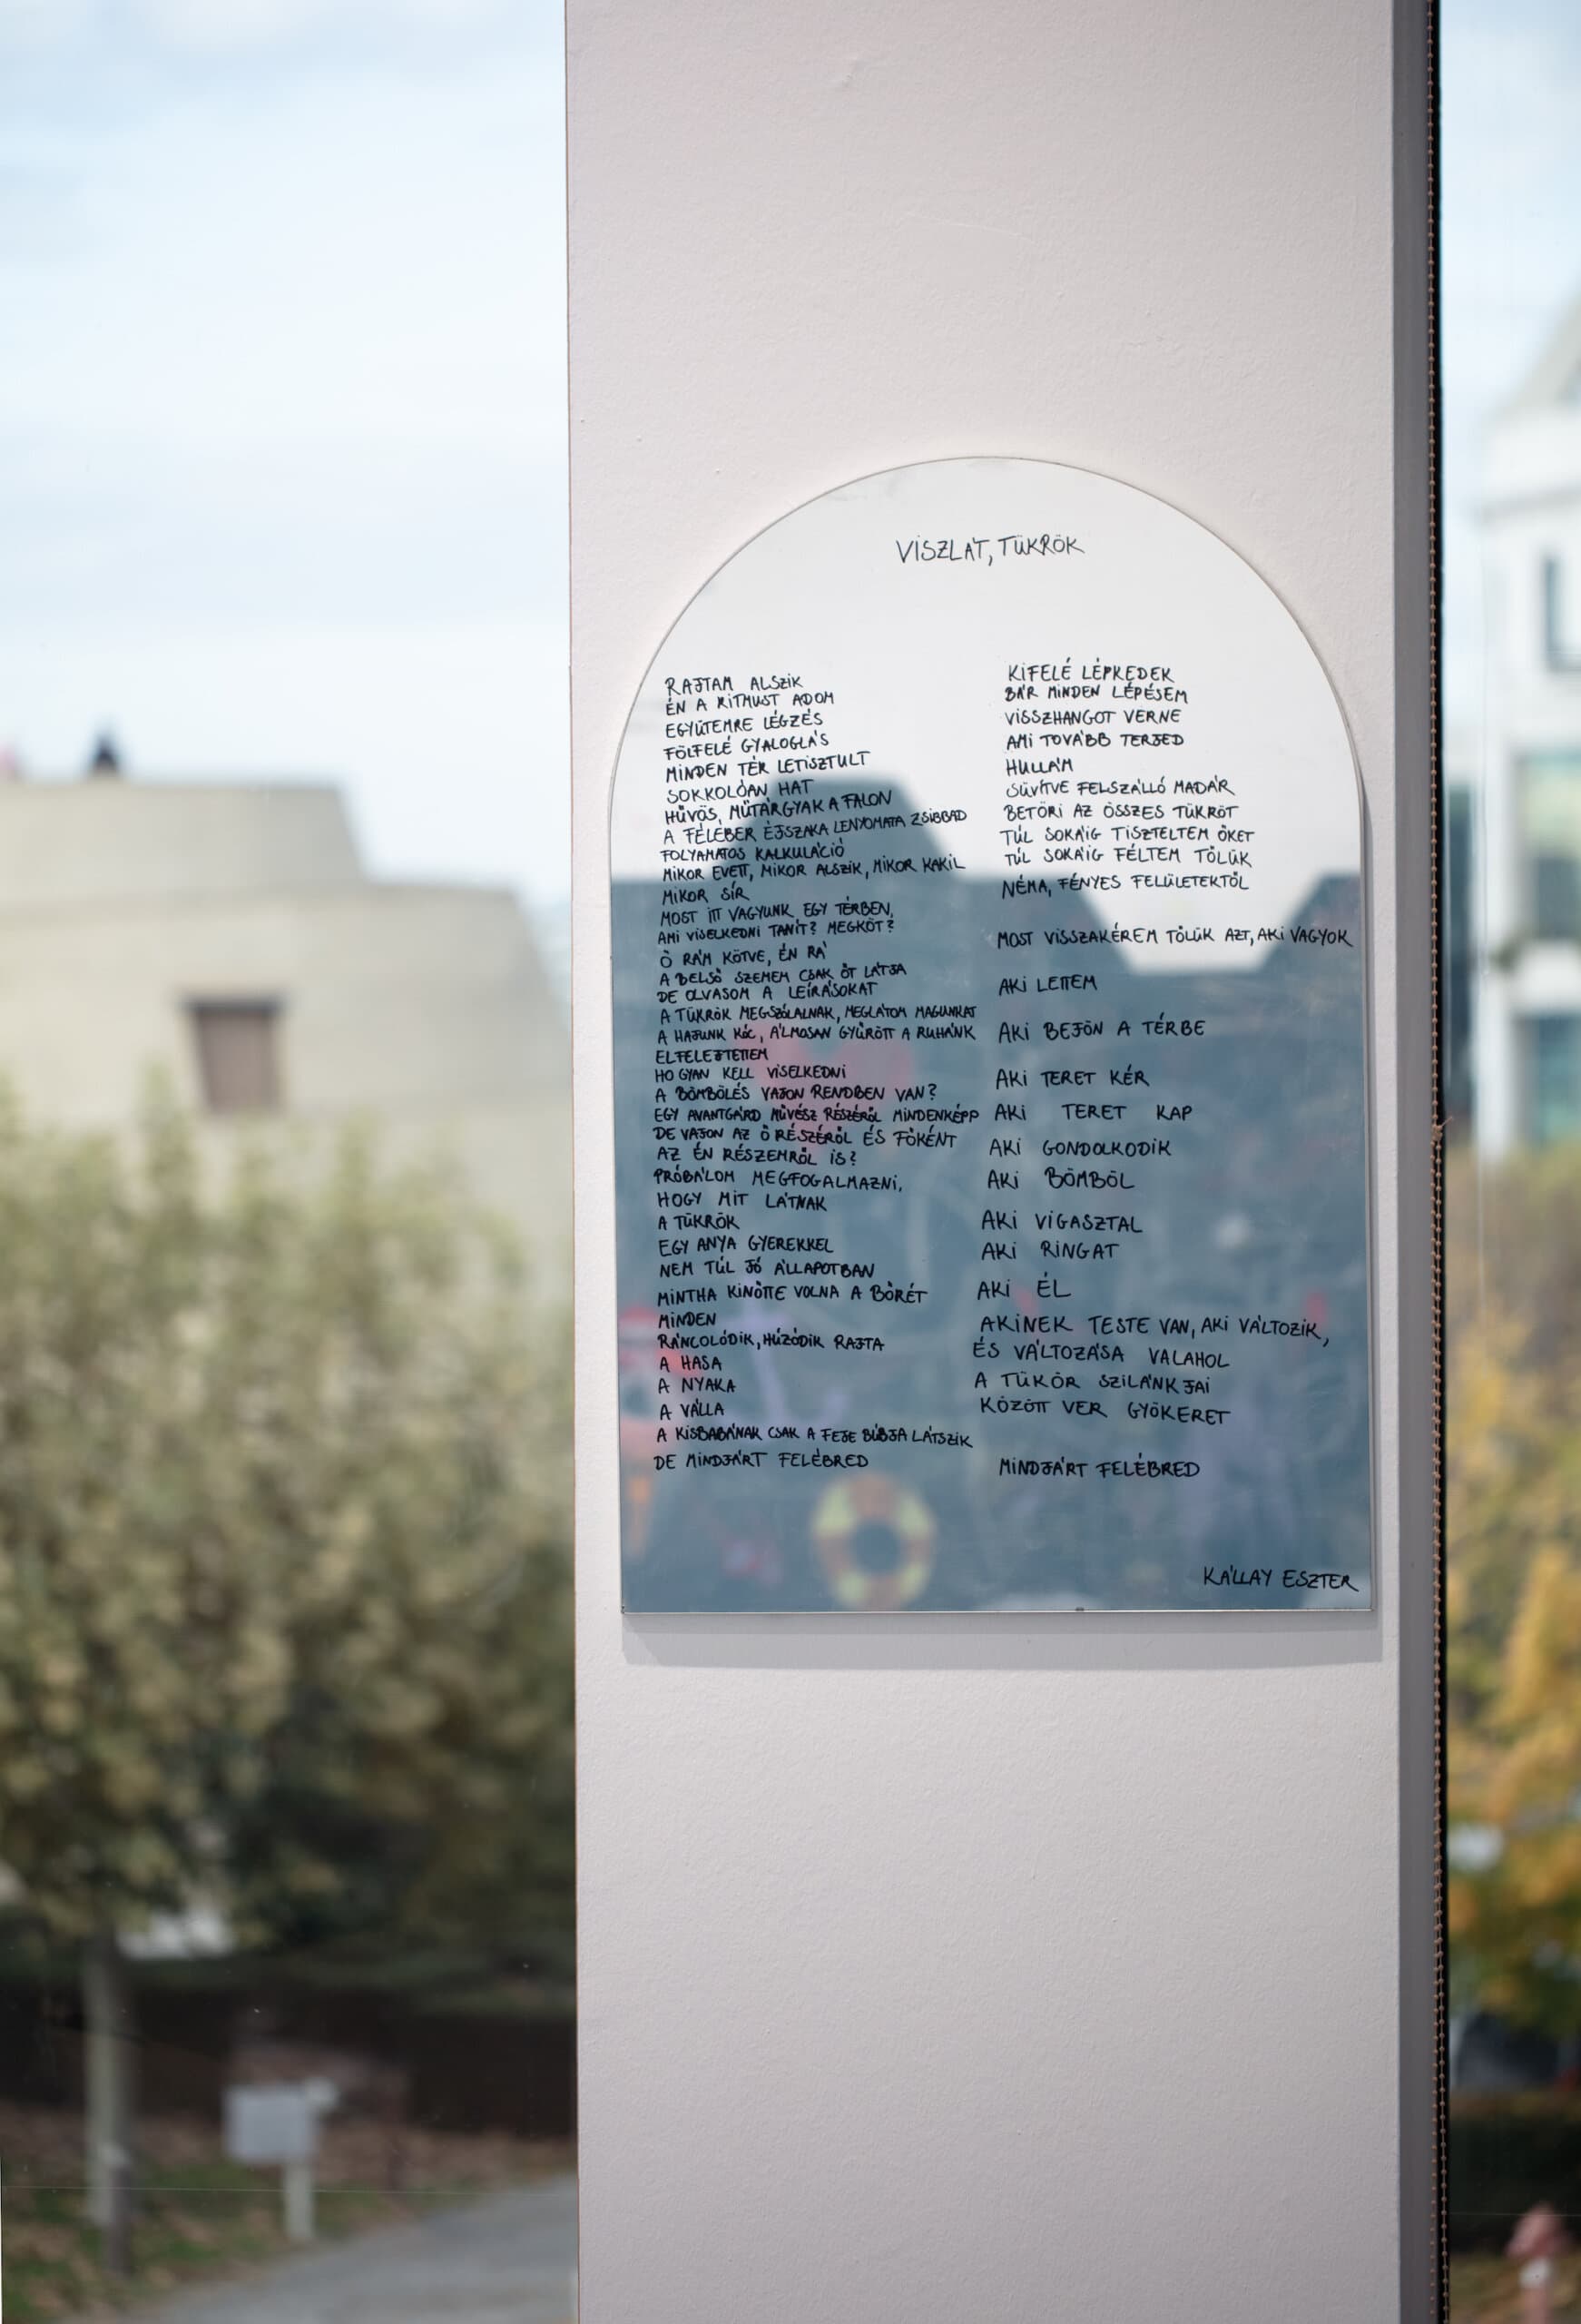 VISZLÁT, TÜKRÖK
RAJTAM ALSZIK
ÉN A RITMUST ADOM
EGYÜTEMRE LÉGZÉS
FÖLFELÉ GYALOGLÁS
MINDEN TÉR LETISZTULT
SOKKOLÓAN HAT
HŰVÖS, MŰTÁRGYAK A FALON
A FÉLÉBER ÉJSZAKA LENYOMATA ZSIBBAD
FOLYAMATOS KALKULÁCIÓ
MIKOR EVETT, MIKOR ALSZIK, MIKOR KAKIL
MIKOR SÍR
MOST ITT VAGYUNK EGY TÉRBEN,
AMI VISELKEDNI TANÍT? MEGKÖT?
Ő RÁM KÖTVE, ÉN RÁ
A BELSŐ SZEMEM CSAK ŐT LÁTJA
DE OLVASOM A LEÍRÁSOKAT
A TÜKRÖK MEGSZÓLALNAK, MEGLÁTOM MAGUNKAT
A HAJUNK KÓC, ÁLMOSAN GYŰRÖTT A RUHÁNK
ELFELEJTETTEM
HOGYAN KELL VISELKEDNI
A BÖMBÖLÉS VAJON RENDBEN VAN?
EGY AVANTGÁRD MŰVÉSZ RÉSZÉRŐL MINDENKÉPP
DE VAJON AZ Ő RÉSZÉRŐL ÉS FŐKÉNT
AZ ÉN RÉSZEMRŐL IS?
PRÓBÁLOM MEGFOGALMAZNI,
HOGY MIT LÁTNAK
A TÜKRÖK
EGY ANYA GYEREKKEL
NEM TÚL JÓ ÁLLAPOTBAN
MINTHA KINŐTTE VOLNA A BŐRÉT
MINDEN
RÁNCOLÓDIK, HÚZÓDIK RAJTA
A HASA
A NYAKA
A VÁLLA
A KISBABÁNAK CSAK A FEJE BÚBJA LÁTSZIK
DE MINDJÁRT FELÉBRED
KIFELÉ LÉPKEDEK
BÁR MINDEN LÉPÉSEM
VISSZHANGOT VERNE
AMI TOVÁBB TERJED
HULLÁM
SÜVÍTVE FELSZÁLLÓ MADÁR
BETÖRI AZ ÖSSZES TÜKRÖT
TÚL SOKÁIG TISZTELTEM ŐKET
TÚL SOKÁIG FÉLTEM TŐLÜK
NÉMA, FÉNYES FELÜLETEKTŐL
MOST VISSZAKÉREM TŐLÜK AZT, AKI VAGYOK
AKI LETTEM
AKI BEJÖN A TÉRBE
AKI TERET KÉR
AKI TERET KAP
AKI GONDOLKODIK
AKI BÖMBÖL
AKI VIGASZTAL
AKI RINGAT
AKI ÉL
AKINEK TESTE VAN, AKI VÁLTOZIK,
ÉS VÁLTOZÁSA VALAHOL
A TÜKÖR SZILÁNKJAI
KÖZÖTT VER GYÖKERET
MINDJÁRT FELÉBRED
KÁLLAY ESZTER